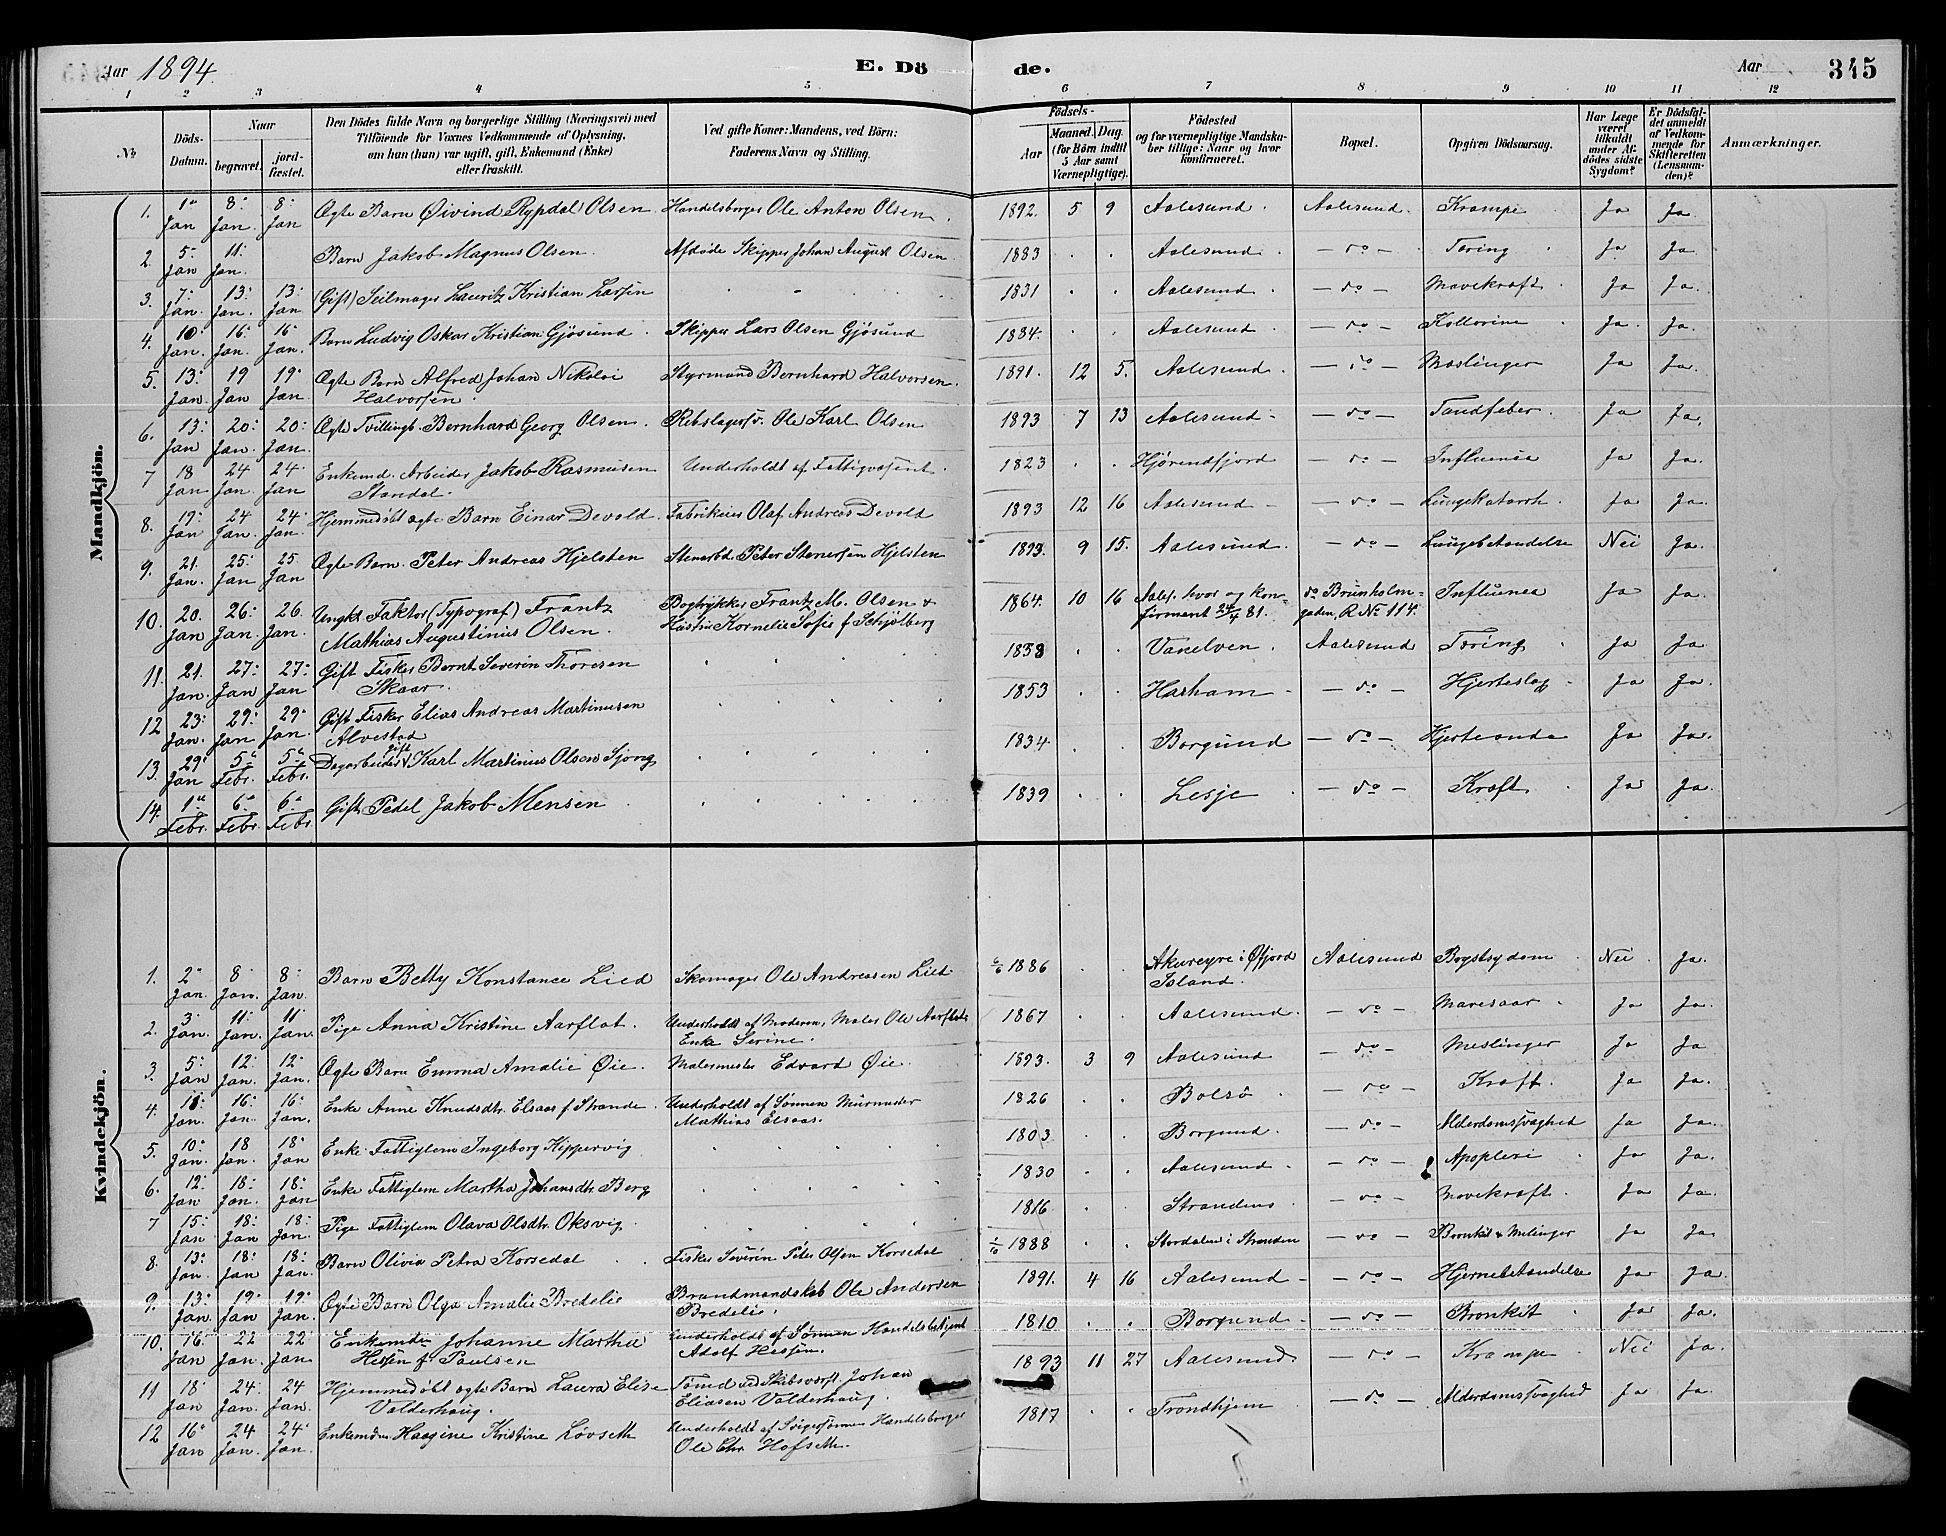 Aar 1894.
E. Dö de.
Aar
345
1 2 3 4 5 6 7 8 9 10 11 12
No
Döds-Datum.
Naar
begravet.
jord-fæstet.
Den Dödes fulde Navn og borgerlige Stilling (Næringsvei) med
Tilföiende for Voxnes Vedkommende af Oplysning,
om han (hun) var ugift, gift, Enkemand (Enke)
eller fraskilt.
Ved gifte Koner: Mandens, ved Börn:
Faderens Navn og Stilling.
Födsels-
Aar
Maaned. Dag.
(for Börn indtil
5 Aar samt
Værnepligtige).
Födested
og for værnepligtige Mandska-
ber tillige: Naar og hvor
konfirmeret.
Bopæl.
Opgiven Dödsaarsag.
Har Læge
været
tilkaldt
under Af-
dödes sidste
Sygdom?
Er Dödsfal-
det anmeldt
af Vedkom-
mende for
Skifteretten
(Lensman-
den)?
Anmærkninger.
Mandkjön.
1. 1. Jan 8. Jan. 8. Jan Ægte Barn Øivind Rypdal Olsen Handelsborger Ole Anton Olsen 1892. 5 9 Aalesund Aalesund Krampe Ja Ja.
2. 5. Jan 11. Jan. Barn Jakob Magnus Olsen Afdøde Skipper Johan August Olsen 1883 Aalesund do Tæring Ja Ja
3. 7. Jan. 13. Jan. 13. Jan (Gift) Seilmager Lauritz Kristian Larsen 1831 Aalesund do Mavekræft Ja Ja.
4. 10 Jan. 16. Jan. 16. Jan. Barn Ludvig Oskar Kristian Gjøsund Skipper Lars Olsen Gjøsund 1884. Aalesund do Ja. Ja.
5. 13. Jan. 19 Jan 19. Jan. Ægte Barn Alfred Johan Nikolai
Halvorsen. Styrmand Bernhard Halvorsen. 1891. 12 5. Aalesund do Mæslinger Ja Ja.
6. 13. Jan 20. Jan. 20. Jan. Ægte Tvillingb. Bernhard Georg Olsen. Rebslagersv. Ole Karl Olsen 1893 7 13 Aalesund do Tandfeber Ja Ja.
7 18 Jan 24 Jan. 24. Jan Enkemd. Arbeider Jakob Rasmusen
Standal. Underholdt af Fattigvæsent. 1823 Hjørendfjord do Influensa Ja Ja.
8. 19. Jan 24 Jan. 24. Jan. Hjemmedøbt ægte Barn Einar Devold. Fabrikeier Olaf Andreas Devold 1893 12 16 Aalesund do Lungekatarrh. Ja Ja.
9. 21. Jan. 25. Jan 25. Jan Ægte Barn. Peter Andreas Hjelsten Stenarbd. Peter Stenersen Hjelsten 1893. 9 15. Aalesund. do Lungebetændelse Nei Ja.
10. 20. Jan 26. Jan. 26. Jan. Ungk. Faktor (Typograf) Frantz
Mathias Augustinus Olsen. Bogtrykker Frantz M. Olsen &
Hustru Kornelie Sofie f Schjølberg 1864. 10 16 Aales. hvor og kon-
firmeret 24/4 81. do Brunholm-
gaden, R. No 114. Influensa Ja Ja.
11. 21. Jan. 27. Jan 27. Jan Gift Fisker Bernt Severin Thoresen
Skaar. 1838 Vanelven Aalesund Tæring Ja Ja.
12 23. Jan. 29. Jan 29. Jan. Gift Fisker Elias Andreas Martinusen
Alvestad 1853 Harham do Hjerteslag Ja Ja.
13. 29. Jan 5. Febr. 5. Febr. Dagarbeider gift Karl Martinus Olsen Sjong 1834 Borgund do Hjerteonde Ja Ja.
14. 1. Febr. 6. Febr. 6. Febr. Gift Pedel Jakob Mensen 1839 Lesje do Kræft Ja Ja.
Kvindekjön.
1. 2. Jan. 8. Jan. 8. Jan. Barn Betty Konstance Lied Skomager Ole Andreasen Lied 1886 Akureyre i Øfjord
Island. Aalesund Brystsygdom Nei Ja.
2. 3. Jan. 11. Jan. 11. Jan. Pige Anna Kristine Aarflot. Underholdt af Moderen, Maler Ole Aarflots
Enke Serine. 1867 Aalesund. do Mavesaar Ja Ja.
3. 5. Jan 12. Jan. 12. Jan. Ægte Barn Emma Amalie Øie. Malermester Edvard Øie. 1893. 3 9 Aalesund do Meslinger Ja Ja
4. 11. Jan. 16. Jan. 16. Jan. Enke Anne Knudsdtr. Elsaas f Strande. Underholdt af Sønnen Murmester
Mathias Elsaas. 1826 Bolsø do Kræft. Ja Ja.
5. 10. Jan. 18 Jan. 18. Jan Enke Fattiglem Ingeborg Kippervig 1803 Borgund. do Alderdomssvaghed Ja Ja.
6. 12. Jan 18. Jan. 18. Jan Enke Fattiglem Martha Johansdtr. Berg 1830 Aalesund do Apoplexi Ja Ja.
7 15. Jan. 18. Jan 18. Jan. Pige Fattiglem Olava Olsdtr. Oksvig. 1816 Strandens do Mavekræft. Ja Ja.
8. 13. Jan 18. Jan 18. Jan. Barn Olivia Petra Korsedal Fisker Severin Peter Olsen Korsedal 1888 Stordalen i Stranden do Bronkit & Meslinger Ja Ja.
9. 13. Jan. 19. Jan. 19. Jan. Ægte Barn Olga Amalie Bredelie Brandmandskab Ole Andersen
Bredelie. 1891. 4 16 Aalesund do Hjernebetændelse Ja Ja.
10. 16. Jan 22 Jan. 22 Jan. Enkemdm Johanne Martha
Hessen f. Paulsen Underholdt af Sønnen Handelsbetjent
Adolf Hessen. 1810 Borgund do Bronkit Ja Ja.
11 18. Jan 24. Jan. 24 Jan. Hjemmedøbt ægte Barn Laura Elise
Valderhaug. Tømd ved Skibsværft. Johan
Eliasen Valderhaug. 1893 11 27 Aalesund. do Krampe Nei Ja.
12 16. Jan 24 Jan. 24. Jan. Enkemdm Haagine Kristine Løvseth Underholdt af Svigersønnen Handelsborger
Ole Chr. Hofseth. 1817 Trondhjem do Alderdomssvaghed Ja Ja.